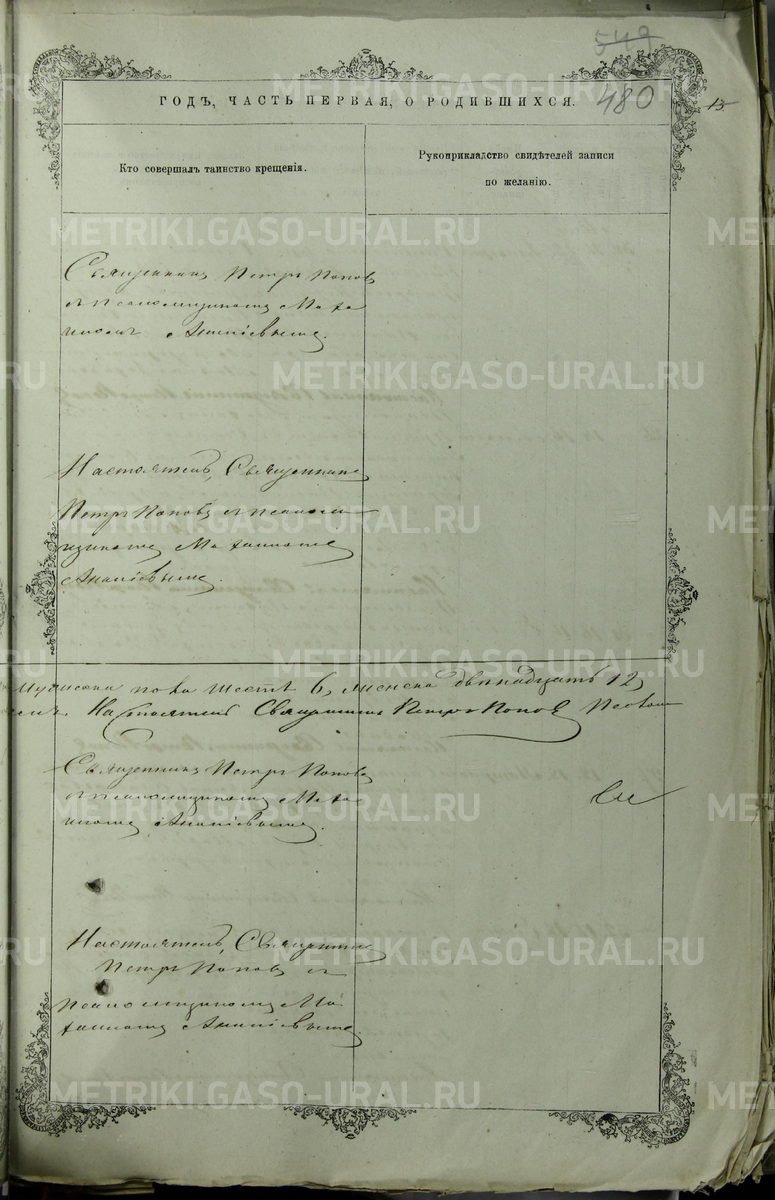 549
480
15
ГОДЪ, ЧАСТЬ ПЕРВАЯ, О РОДИВШИХСЯ.
Кто совершалъ таинство крещенія.
Рукоприкладство свидѣтелей записи
по желанію.
Священникъ Петръ Поповъ
съ псаломщикомъ Миха
иломъ Ананіевымъ.
Настоятель, Священникъ
Петръ Поповъ съ псалом
щикомъ Михаиломъ
Ананіевымъ.
пола шесть 6, женска двѣнадцать 12,
Настоятель Священникъ Петръ Поповъ Псалом
Священникъ Петръ Поповъ
съ псаломщикомъ Миха
иломъ Ананіевымъ.
Настоятель, Священникъ
Петръ Поповъ съ
псаломщикомъ Ми
хаиломъ Ананіевымъ.
METRIKI.GASO-URAL.RU